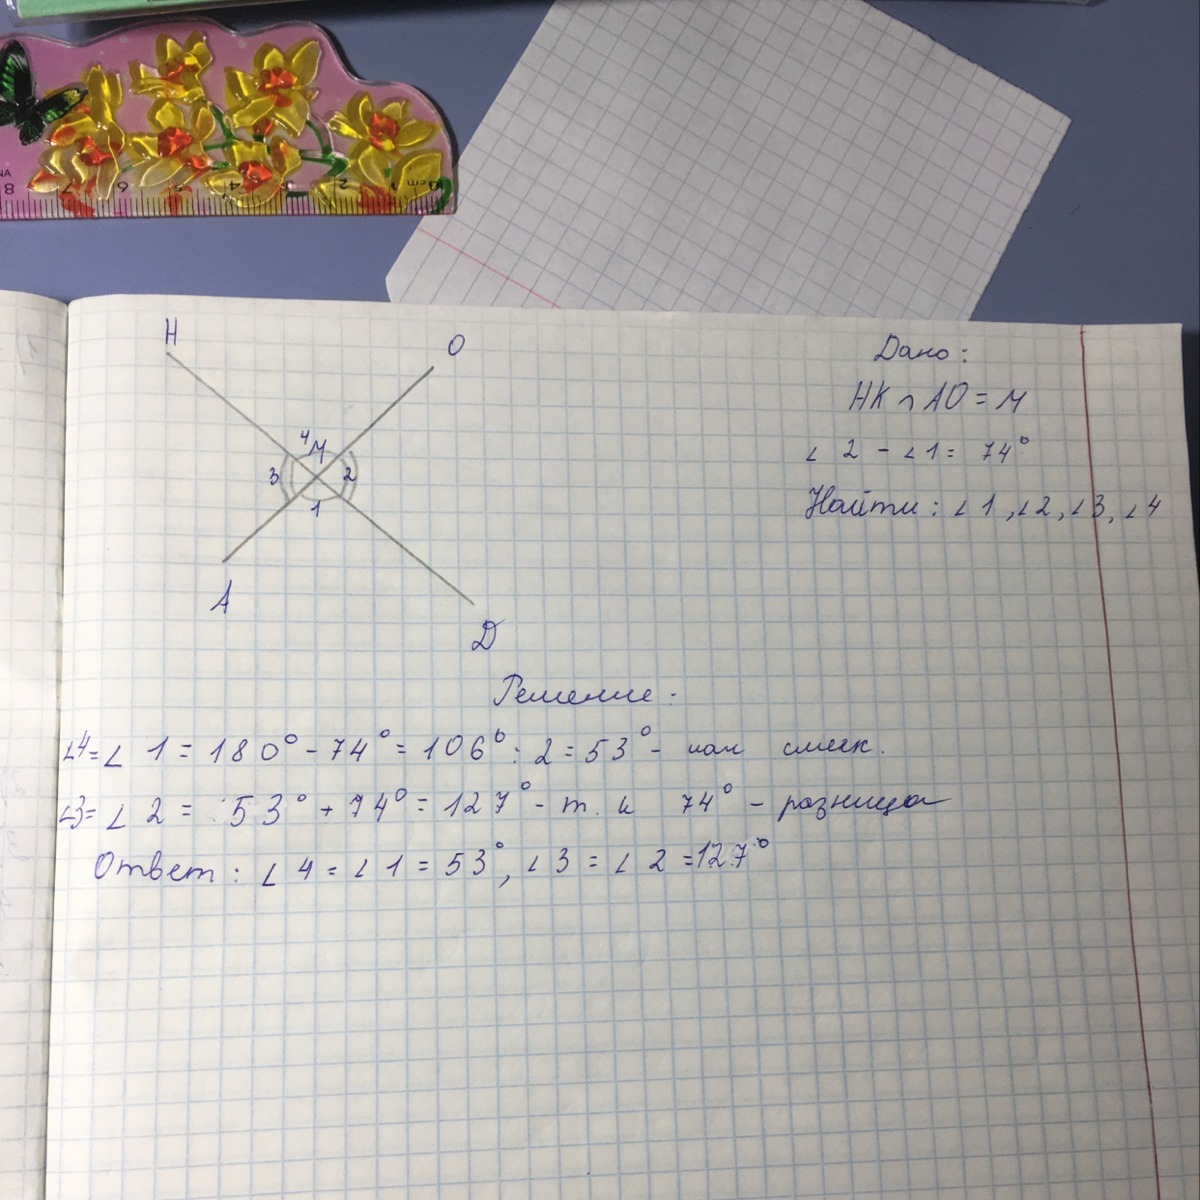 8 7 6 5 4 3 2 1 0cm
H
O
4
M
3
2
1
A
D
Дано:
HK ∩ AO = M
∠ 2 - ∠ 1 = 74°
Найти: ∠ 1, ∠ 2, ∠ 3, ∠ 4
Решение:
∠4 = ∠ 1 = 180° - 74° = 106° : 2 = 53° - как смеж.
∠3 = ∠ 2 = 53° + 74° = 127° - т. к 74° - разница
Ответ: ∠ 4 = ∠ 1 = 53°, ∠ 3 = ∠ 2 = 127°